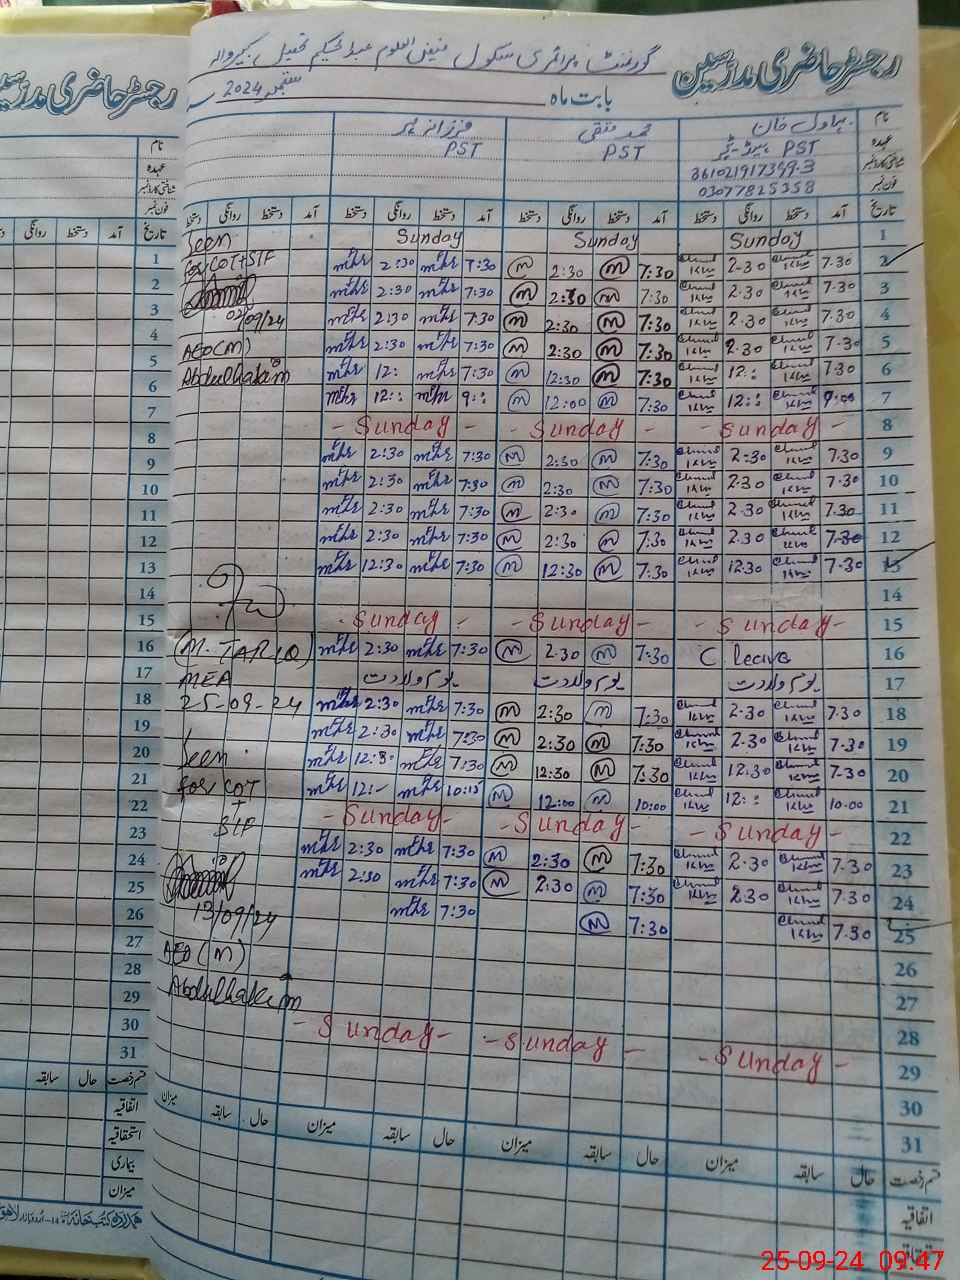 رجسٹر حاضری مدرسین
گورنمنٹ پرائمری سکول فیض العلوم عبدالحکیم تحصیل کبیروالا
بابت ماہ ستمبر 2024
نام بہاول خان محمد متقی
عہدہ PST ہیڈ ٹیچر PST PST
شناختی کارڈ نمبر
فون نمبر 03077825358
تاریخ آمد دستخط روانگی دستخط آمد دستخط روانگی دستخط آمد دستخط روانگی دستخط آمد دستخط روانگی دستخط
1 Sunday Sunday Sunday Seen
2 7.30 2.30 7:30 2:30 7:30 2:30 for COT+STF
3 7.30 2.30 7:30 2:30 7:30 2:30
4 7.30 2.30 7:30 2:30 7:30 2:30 02/09/24
5 7.30 2.30 7:30 2:30 7:30 2:30 AEO (M)
6 7.30 12:: 7:30 12:30 7:30 12: Abdulhakim
7 9:00 12:: 7:30 12:00 9:: 12::
8 - Sunday - - Sunday - - Sunday -
9 7.30 2:30 7:30 2:30 7:30 2:30
10 7.30 2.30 7:30 2:30 7:30 2:30
11 7.30 2.30 7:30 2:30 7:30 2:30
12 7.30 2.30 7:30 2:30 7:30 2:30
13 7.30 12.30 7:30 12:30 7:30 12:30
14
15 - Sunday - - Sunday - - Sunday -
16 C. leave 7:30 2:30 7:30 2:30 (M. TARIQ)
17 یوم ولادت یوم ولادت یوم ولادت MEA
18 7.30 2.30 7:30 2:30 7:30 2:30 25-09-24
19 7.30 2.30 7:30 2:30 7:30 2:30
20 7.30 12.30 7:30 12:30 7:30 12:30 Seen
21 10.00 12:: 10:00 12:00 10:15 12:- for COT
22 - Sunday - - Sunday - - Sunday - +
23 7.30 2.30 7:30 2:30 7:30 2:30 STF
24 7.30 2.30 7:30 2:30 7:30 2:30
25 7.30 7:30 7:30 13/09/24
26 AEO (M)
27 Abdulhakim
28
29 - Sunday - - Sunday - - Sunday -
30
31
قسم رخصت حال سابقہ میزان حال سابقہ میزان حال سابقہ میزان حال سابقہ میزان
اتفاقیہ
رجسٹر حاضری مدرسین
نام
عہدہ
شناختی کارڈ نمبر
فون نمبر
تاریخ آمد دستخط روانگی
1
2
3
4
5
6
7
8
9
10
11
12
13
14
15
16
17
18
19
20
21
22
23
24
25
26
27
28
29
30
31
قسم رخصت حال سابقہ
اتفاقیہ
استحقاقیہ
بیماری
میزان
25-09-24 09:47